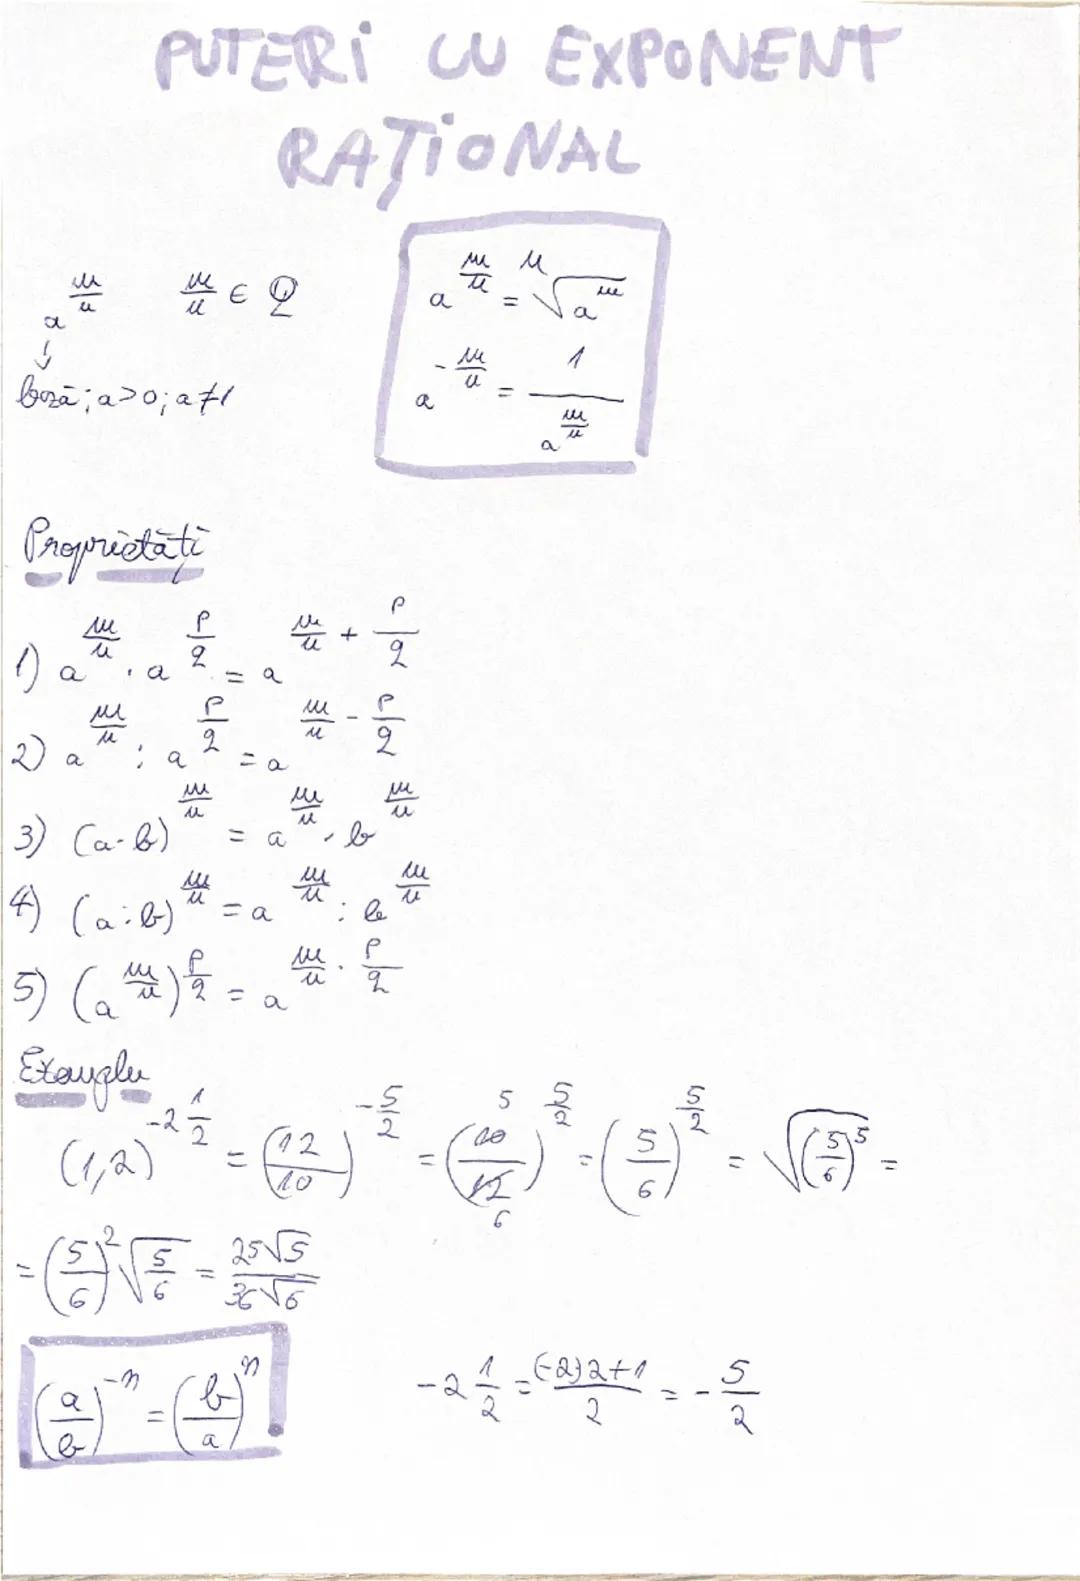 PUTERI CU EXPONENT
RAȚIONAL
a^(m/n)   m/n ∈ Q
↓
bază; a>0; a≠1
a^(m/n) = ⁿ√(a^m)
a^(-m/n) = 1/(a^(m/n))
Proprietăți
1) a^(m/n) · a^(p/q) = a^(m/n + p/q)
2) a^(m/n) : a^(p/q) = a^(m/n - p/q)
3) (a·b)^(m/n) = a^(m/n) · b^(m/n)
4) (a:b)^(m/n) = a^(m/n) : b^(m/n)
5) (a^(m/n))^(p/q) = a^(m/n · p/q)
Exemplu
(1,2)^(-2 1/2) = (12/10)^(-5/2) = (10/12)^(5/2) 5 6 = (5/6)^(5/2) = √((5/6)^5) =
= (5/6)^2 √(5/6) = 25√5/36√6
(a/b)^(-n) = (b/a)^n !
-2 1/2 = (-2)2+1/2 = -5/2